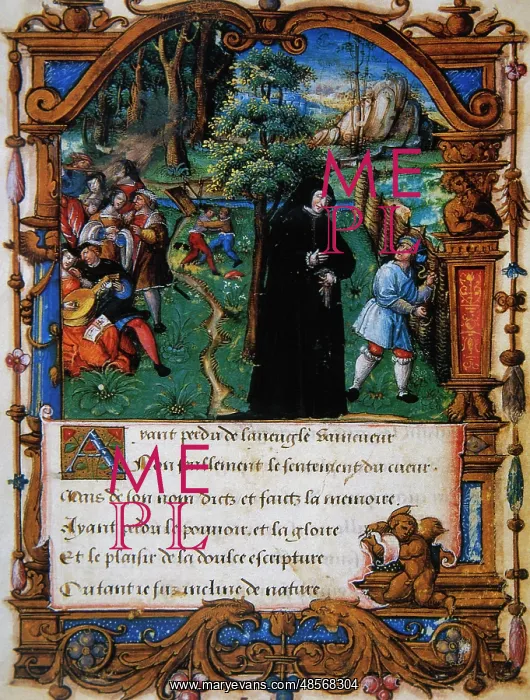 ME
PL
Ayant perdu de laueugle vaincueur
Non seullement le sentement du cueur.
Mais de son nom dictz et faictz la memoire
Ayant perdu le pouuoir, et la gloire
Et le plaisir de la doulce escripture
Ou tant ie fuz incline de nature
ME
PL
www.maryevans.com/48568304